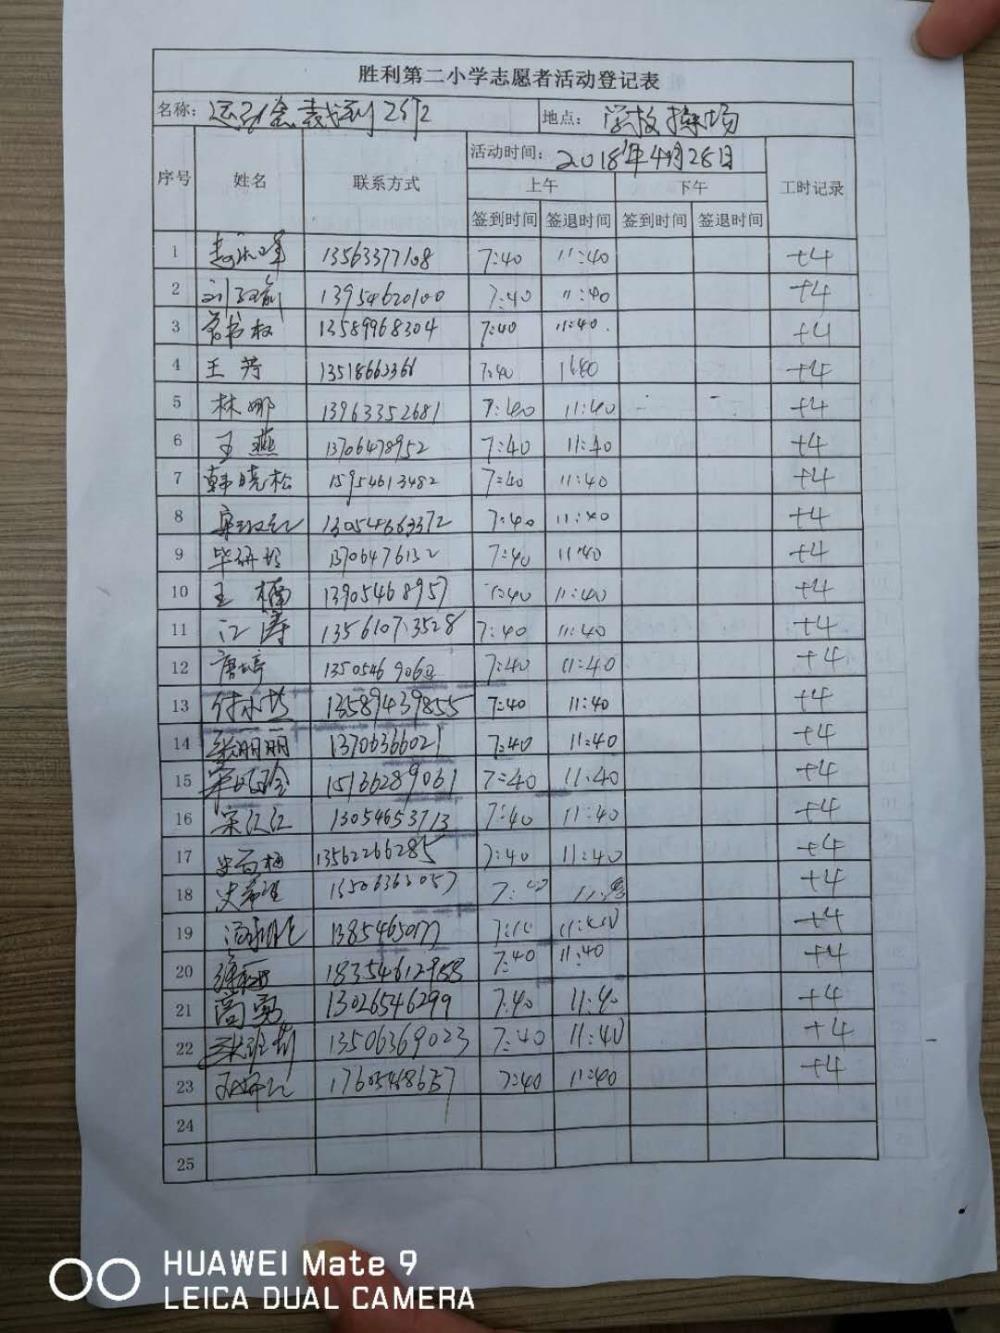 胜利第二小学志愿者活动登记表
名称： 运动会裁判 地点： 学校操场
序号 姓名 联系方式 活动时间： 2018年4月28日 工时记录
上午 下午
签到时间 签退时间 签到时间 签退时间
1 13563377108 7:40 11:40 +4
2 13954620100 7:40 11:40 +4
3 13589968304 7:40 11:40 +4
4 王芳 13518663366 7:40 +4
5 林娜 13963352681 7:40 11:40 +4
6 王燕 13706478952 7:40 11:40 +4
7 韩晓松 15954613482 7:40 11:40 +4
8 13054663372 7:40 11:40 +4
9 13706476132 7:40 11:40 +4
10 王楠 13905468957 7:40 11:40 +4
11 江涛 13561073528 7:40 11:40 +4
12 唐婷 7:40 11:40 +4
13 13589439855 7:40 11:40 +4
14 丽丽 13706366021 7:40 11:40 +4
15 15166289061 7:40 11:40 +4
16 宋江江 13054653713 7:40 11:40 +4
17 13562266285 7:40 11:40 +4
18 +4
19 +4
20 18354612958 7:40 11:40 +4
21 高勇 13026546299 7:40 11:40 +4
22 13506369023 7:40 11:40 +4
23 17605468657 7:40 11:40 +4
24
25
HUAWEI Mate 9
LEICA DUAL CAMERA